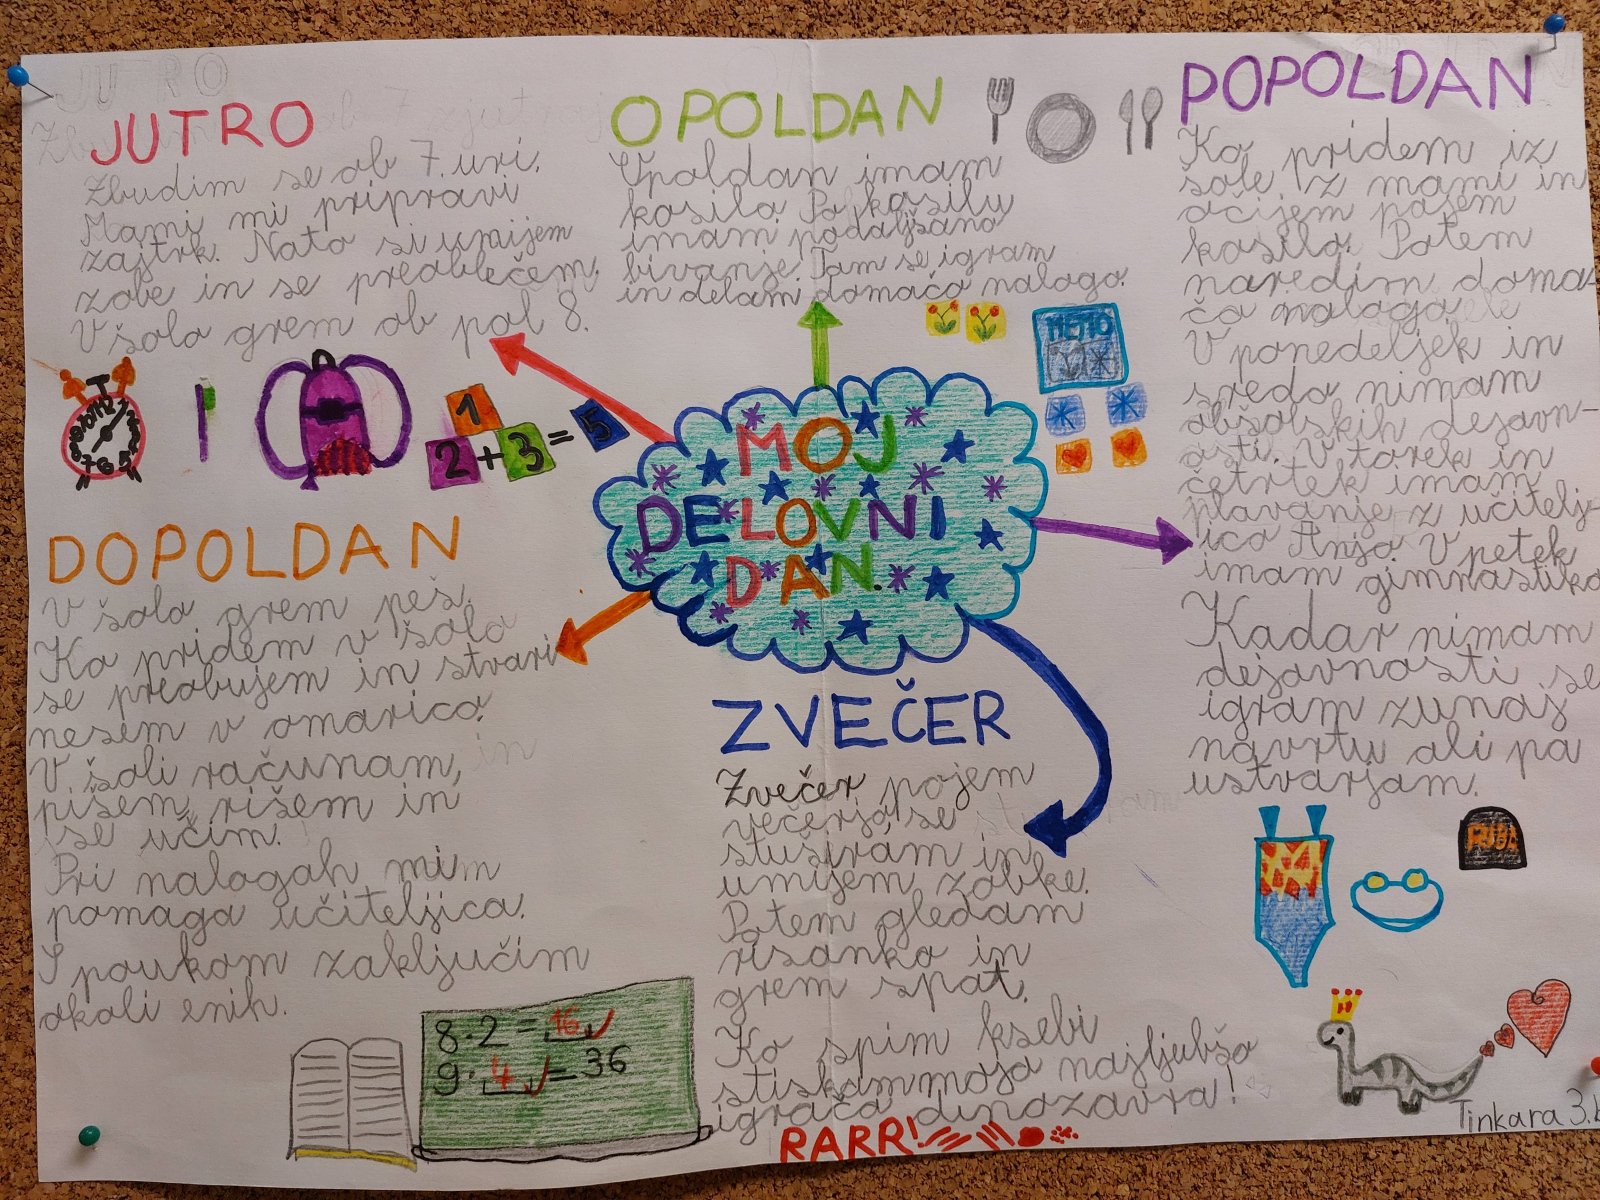 JUTRO
Zbudim se ob 7. uri.
Mami mi pripravi
zajtrk. Nato si umijem
zobe in se preoblečem.
V šolo grem ob pol 8.
1
2+3=5
OPOLDAN
Vpoldan imam
kosilo Po kosilu
imam podaljšano
bivanje. Tam se igram
in delam domačo nalogo.
MEMO
POPOLDAN
Ko pridem iz
šole iz mami in
očijem pojem
kosilo. Potem
naredim doma-
čo nalogo
V ponedeljek in
sredo nimam
obšolskih dejavn-
osti. V torek in
četrtek imam
plavanje z učitelj-
ico Anjo V petek
imam gimnastiko
Kadar nimam
dejavnosti se
igram zunaj
navrtu ali pa
ustvarjam.
MOJ
DELOVNI
DAN.
DOPOLDAN
V šolo grem peš.
Ko pridem v šolo
se preobujem in stvari
nesem v omarico.
V šoli računam,
pišem, rišem in
se učim.
Pri nalogah mi
pomaga učiteljica.
S poukom zaključim
okoli enih.
8·2=16
9·4=36
ZVEČER
Zvečer pojem
večerjo, se
stuširam in
umijem zobke.
Potem gledam
risanko in
grem spat.
Ko spim ksebi
stiskam mojo najljubšo
igračo dinozavra!
RARR!
Tinkara 3.b